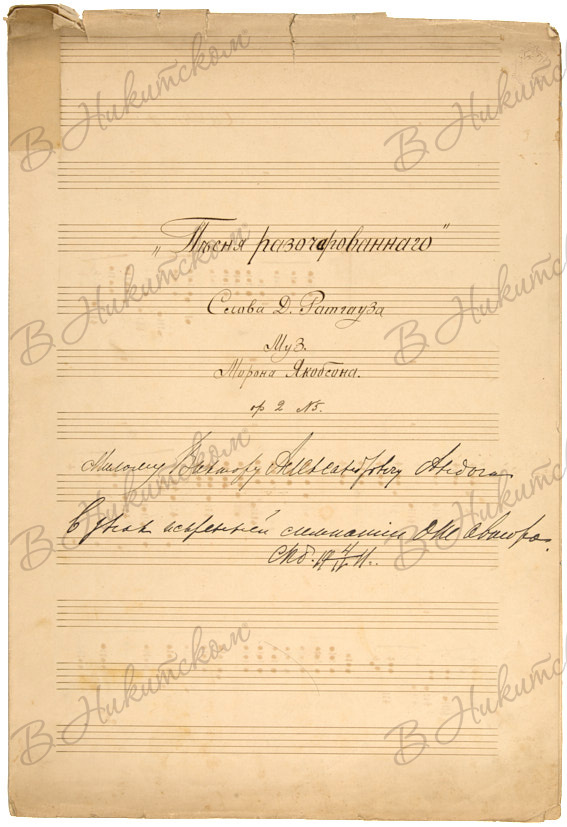 „Пѣсня разочарованнаго"
Слова Д. Ратгауза
Муз.
Мирона Якобсона.
ор 2 № 5.
Милому Виктору Александровичу
въ знак искренней симпатии от автора.
Спб.
В Никитском
В Никитском
В Никитском
В Никитском
В Никитском
В Никитском
В Никитском
В Никитском